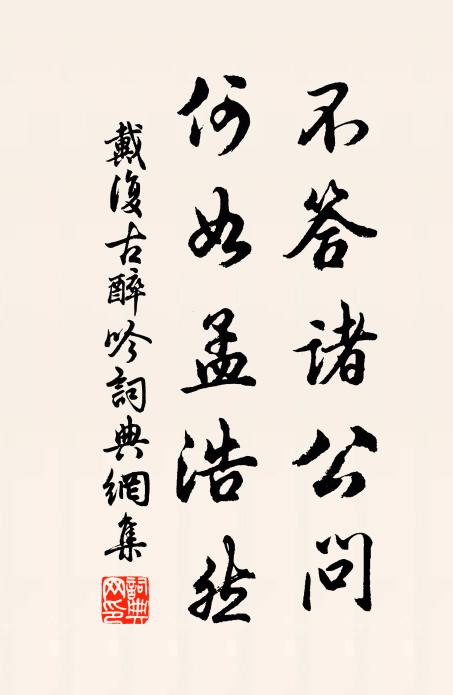 不答諸公問
何如孟浩然
戴復古醉吟詞典網集
詞典网印